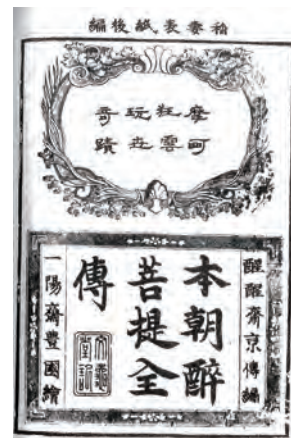 稲妻表紙後編
摩可
狂雲
玩世
奇蹟
醒醒齋京傳編
本朝醉
菩提全
傳
一陽齋豊國繪